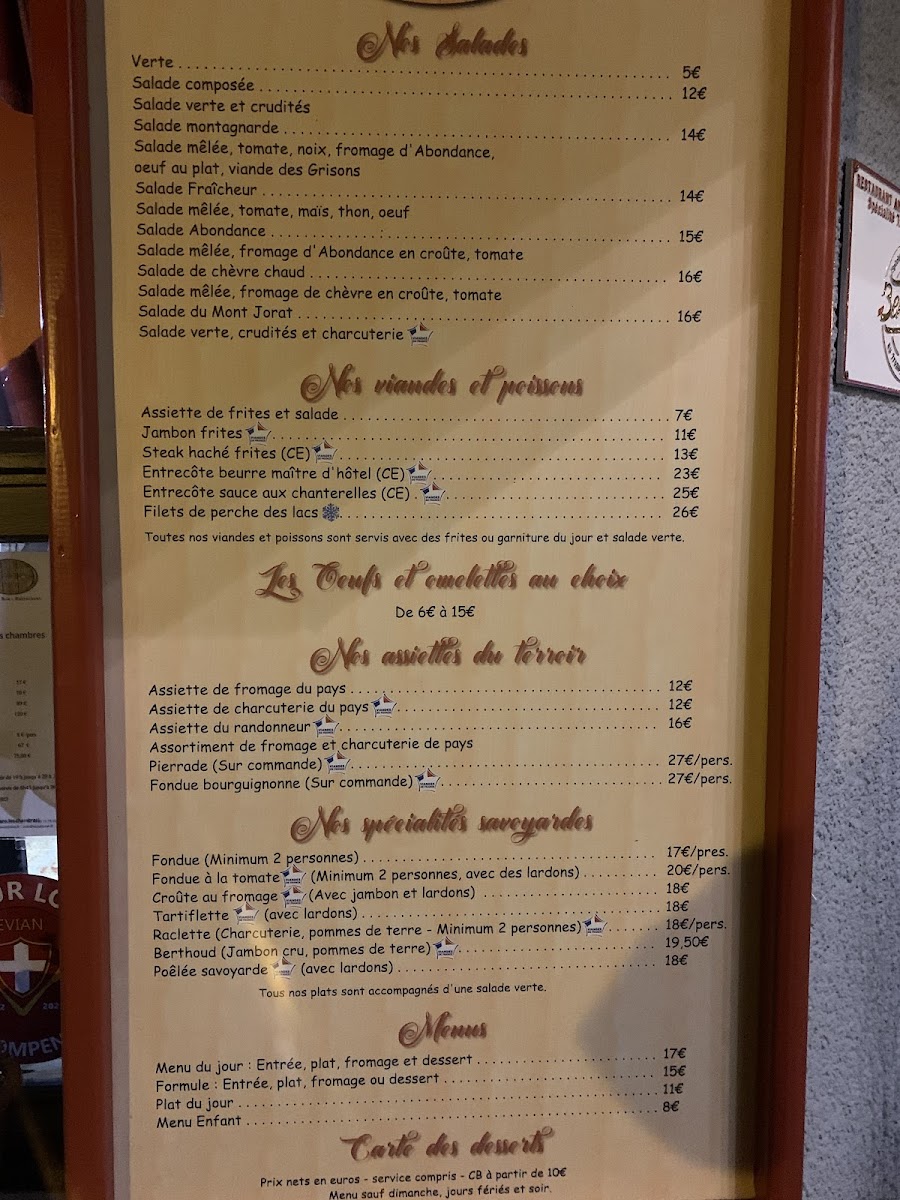 Nos Salades
Verte ........ 5€
Salade composée ........ 12€
Salade verte et crudités
Salade montagnarde ........ 14€
Salade mêlée, tomate, noix, fromage d'Abondance,
oeuf au plat, viande des Grisons
Salade Fraîcheur ........ 14€
Salade mêlée, tomate, maïs, thon, oeuf
Salade Abondance ........ 15€
Salade mêlée, fromage d'Abondance en croûte, tomate
Salade de chèvre chaud ........ 16€
Salade mêlée, fromage de chèvre en croûte, tomate
Salade du Mont Jorat ........ 16€
Salade verte, crudités et charcuterie
Nos viandes et poissons
Assiette de frites et salade ........ 7€
Jambon frites ........ 11€
Steak haché frites (CE) ........ 13€
Entrecôte beurre maître d'hôtel (CE) ........ 23€
Entrecôte sauce aux chanterelles (CE) ........ 25€
Filets de perche des lacs ........ 26€
Toutes nos viandes et poissons sont servis avec des frites ou garniture du jour et salade verte.
Les Oeufs et omelettes au choix
De 6€ à 15€
Nos assiettes du terroir
Assiette de fromage du pays ........ 12€
Assiette de charcuterie du pays ........ 12€
Assiette du randonneur ........ 16€
Assortiment de fromage et charcuterie de pays
Pierrade (Sur commande) ........ 27€/pers.
Fondue bourguignonne (Sur commande) ........ 27€/pers.
Nos spécialités savoyardes
Fondue (Minimum 2 personnes) ........ 17€/pres.
Fondue à la tomate (Minimum 2 personnes, avec des lardons) ........ 20€/pers.
Croûte au fromage (Avec jambon et lardons) ........ 18€
Tartiflette (avec lardons) ........ 18€
Raclette (Charcuterie, pommes de terre - Minimum 2 personnes) ........ 18€/pers.
Berthoud (Jambon cru, pommes de terre) ........ 19,50€
Poêlée savoyarde (avec lardons) ........ 18€
Tous nos plats sont accompagnés d'une salade verte.
Menus
Menu du jour : Entrée, plat, fromage et dessert ........ 17€
Formule : Entrée, plat, fromage ou dessert ........ 15€
Plat du jour ........ 11€
Menu Enfant ........ 8€
Carte des desserts
Prix nets en euros - service compris - CB à partir de 10€
Menu sauf dimanche, jours fériés et soir.
RESTAURANT
chambres
EVIAN